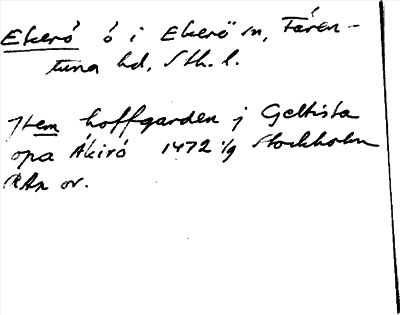 Ekerö ö i Ekerö sn, Fären-
tuna hd, Sth. l.
Jtem hoffgarden j Geltista
opa Åkirö 1472 1/9 Stockholm
RAp or.